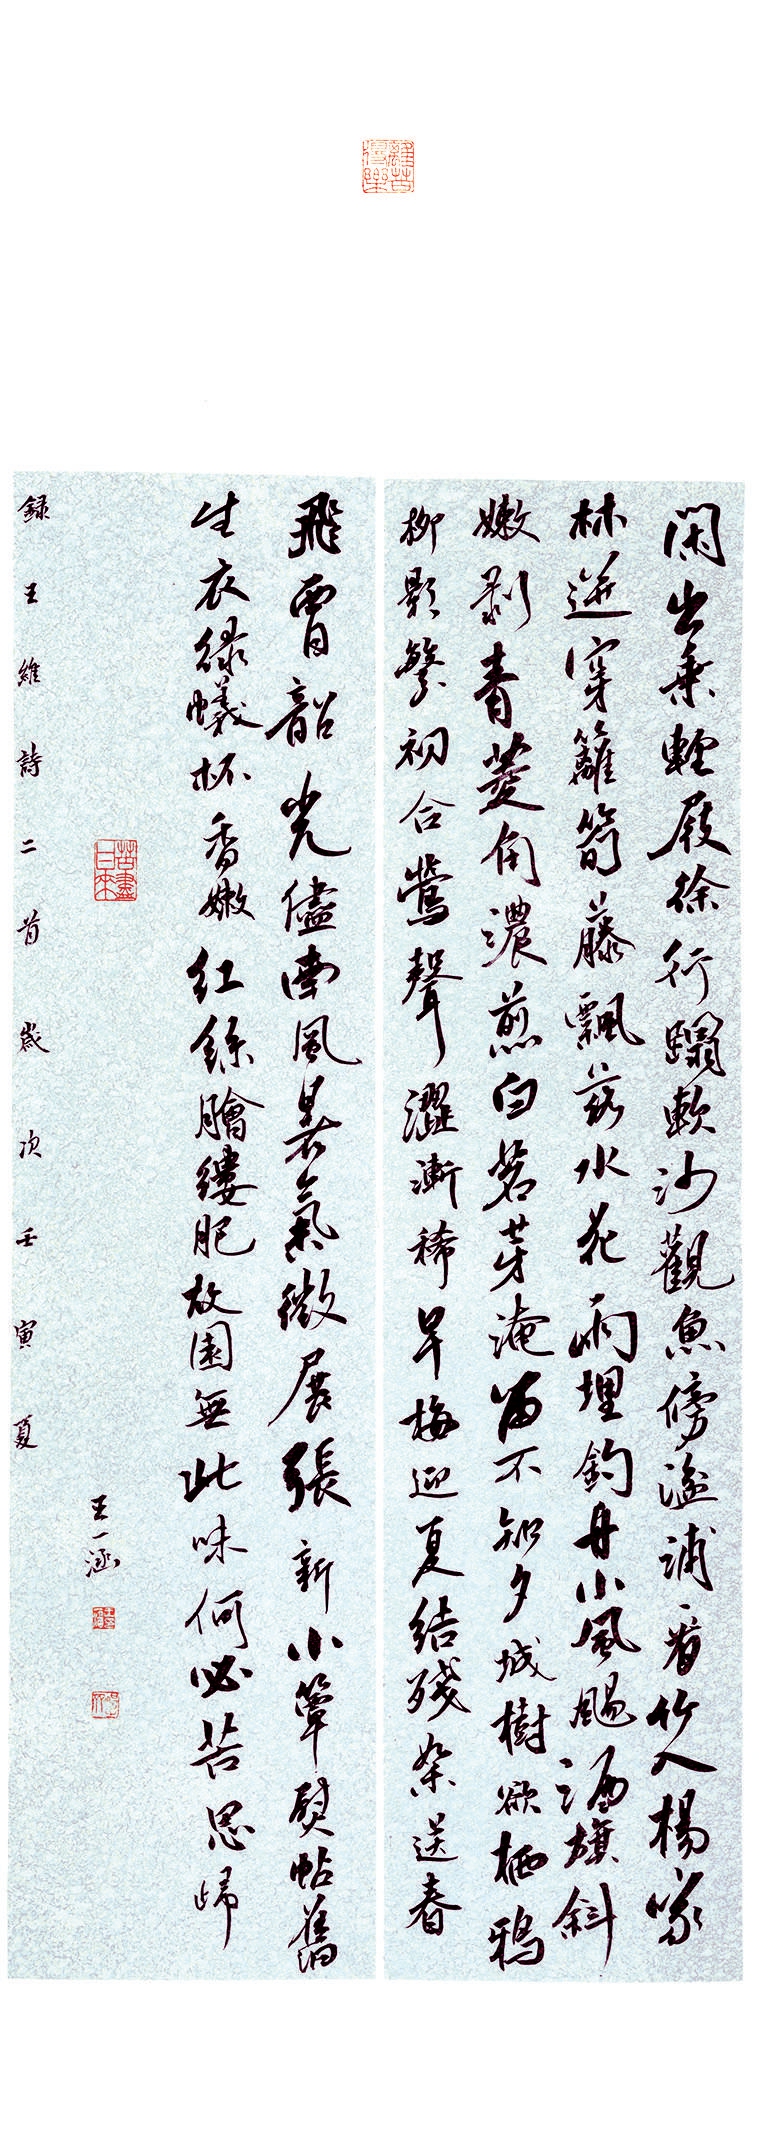 閑出乘輕屐徐行蹋軟沙觀魚傍湓浦看竹入楊家
林迸穿籬筍藤飄落水花雨埋釣舟小風颺酒旗斜
嫩剥青菱角濃煎白茗芽淹留不知夕城樹欲栖鴉
柳影繁初合鶯聲澀漸稀早梅迎夏結殘絮送春
飛西日韶光儘南風暑氣微展張新小簟熨帖舊
生衣緑蟻杯香嫩紅絲膾縷肥故園無此味何必苦思歸
録王維詩二首歲次壬寅夏
王一涵
離苦得樂